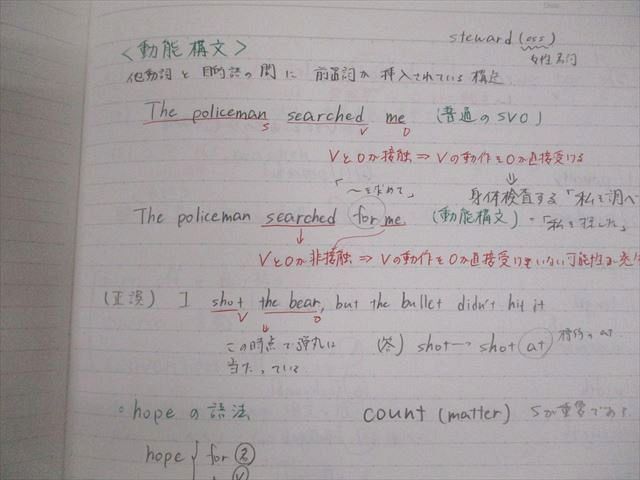 steward (ess)
女性名詞
〈動能構文〉
他動詞と目的語の間に前置詞が挿入されている構造
The policeman searched me (普通のSVO)
S V O
VとOが接触⇒Vの動作をOが直接受ける
⇓
「〜を求めて」
身体検査する「私を調べ
The policeman searched for me. (動能構文)・「私を探した」
↓
VとOが非接触⇒Vの動作をOが直接受けていない可能性が
(正誤) I shot the bear, but the bullet didn't hit it
V O
↓
この時点で弾丸は
当たっている
(答) shot → shot at
の at
・hope の語法
count (matter) Sが重要である
hope { for ②